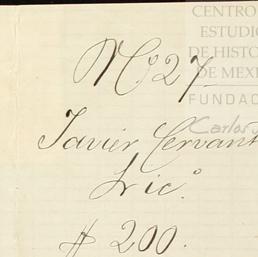 CENTRO
ESTUDIO
DE HISTO
DE MEXI
FUNDAC
Carlos
No 27.
Javier Cervant
$ 200.